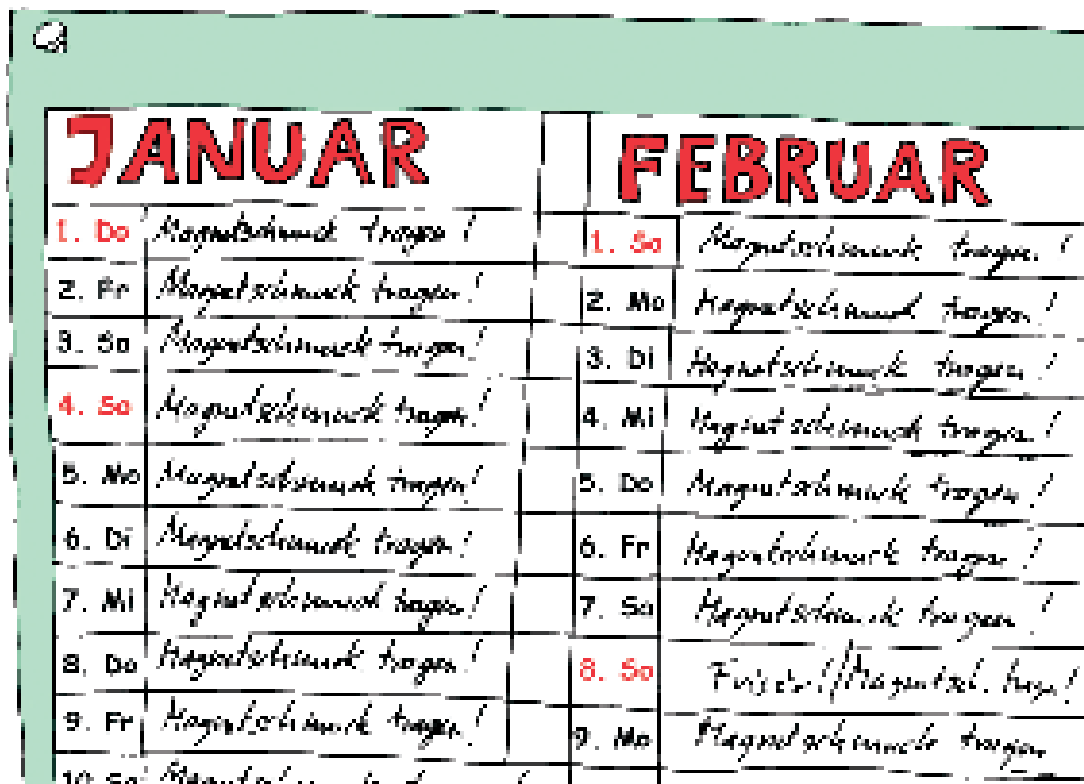 JANUAR
1. Do Magnetschmuck tragen!
2. Fr Magnetschmuck tragen!
3. Sa Magnetschmuck tragen!
4. So Magnetschmuck tragen!
5. Mo Magnetschmuck tragen!
6. Di Magnetschmuck tragen!
7. Mi Magnetschmuck tragen!
8. Do Magnetschmuck tragen!
9. Fr Magnetschmuck tragen!
10. Sa Magnetschmuck
FEBRUAR
1. So Magnetschmuck tragen!
2. Mo Magnetschmuck tragen!
3. Di Magnetschmuck tragen!
4. Mi Magnetschmuck tragen!
5. Do Magnetschmuck tragen!
6. Fr Magnetschmuck tragen!
7. Sa Magnetschmuck tragen!
8. So Frisör!/Magnetsch. trag.!
9. Mo Magnetschmuck tragen